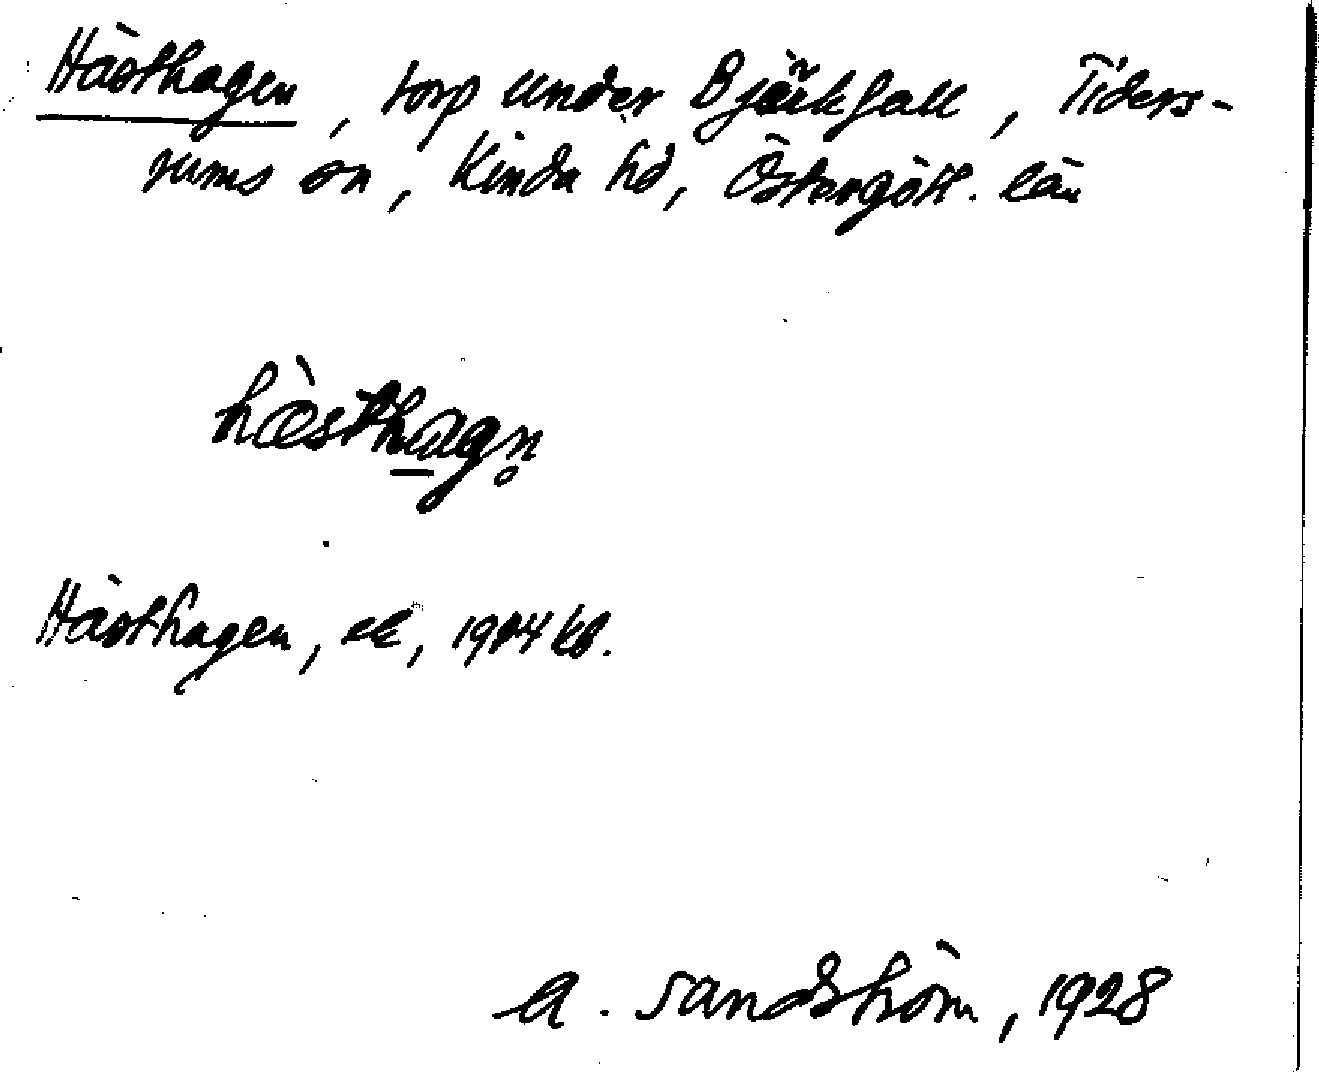 Hästhagen, torp under Björkfall, Tiders-
rums sn, Kinda hd, Östergötl. län
hæsthagn̥
Hästhagen, 1914 kb.
A. Sandström, 1928